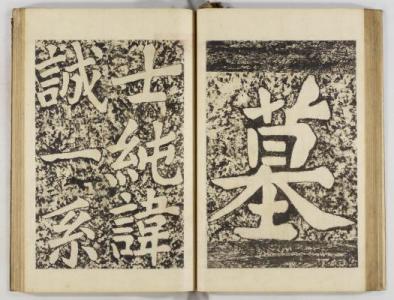 墓
士純諱
誠一系